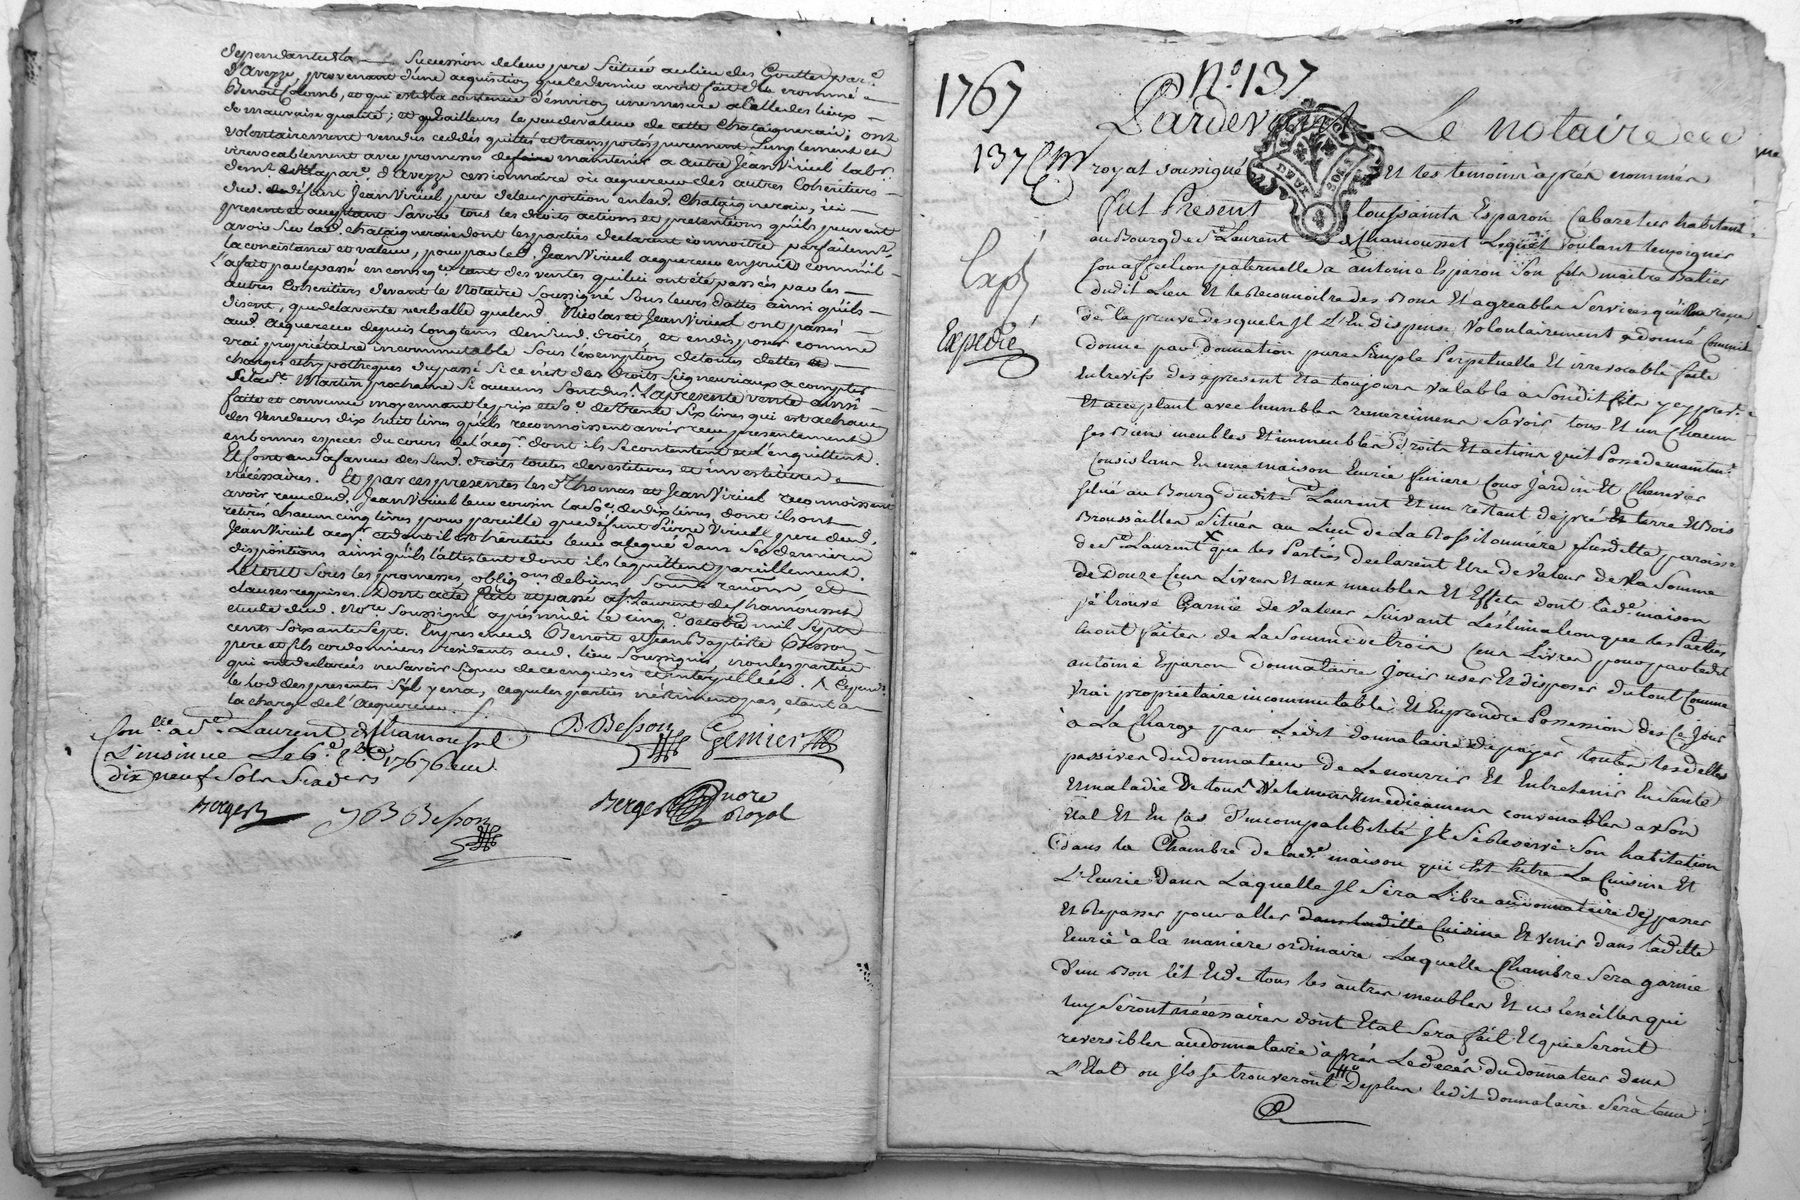 dependante de la succession de leur pere scituée au lieu des Gouttes par.e
d'Aveyze, provenant d'une acquisition que ce dernier avoit fait de
Benoit Colomb, et qui est de la contenue d'environ une mesure a l'ille des lieux
de mauvaise qualité; et qu'ailleurs le peu de valeur de cette chataigneraie; ont
volontairement vendus ceddés quittés et transportés purement simplement et
irrevocablement avec promesses de faire maintenir a autre Jean Viricel lab.r
dem.t par.e d'Aveyze cessionnaire ou acquereur des autres Coheritiers
dud. deffunt Jean Viricel, pere de leur portion en lad. chataigneraie, ici
present et acceptant savoir tous les droits actions et pretentions qu'ils peuvent
avoir sur lad. chataigneraie dont les parties declarent connoitre parfaitem.t
la concistance et valeur, pour par led. Jean Viricel acquereur en jouir comm'il
l'a fait par le passé en conseq.ce tant des ventes qui lui ont été passées par les
autres Coheritiers devant le Notaire soussigné sous leurs dattes ainsi qu'ils
disent, que de la vente verballe que lesd. Nicolas et Jean Viricel ont passés
aud. acquereur depuis longtems de leursd. droits, et en disposer comme
vrai propriétaire incommutable sous l'exemption de toutes dettes
charges et hypotheques du passé si ce n'est des droits seigneuriaux a compter
de la St. Martin prochaine si aucuns sont dus. La presente vente ainsi
faite et convenue moyennant le prix et so.e de trente six livres qui est a chacun
des vendeurs dix huit livres qu'ils reconnoissent avoir reçu presentement
en bonnes especes du cours de l'acq.r dont ils se contentent et l'en quittent.
Et font en sa faveur des susd. droits toutes devestitures et investitures
nécéssaires. Et par ces presentes les d. Thomas et Jean Viricel reconnoissent
avoir reçu dud. Jean Viricel leur cousin la so.e de dix livres dont ils ont
retirés chacun cinq livres pour pareille que défunt Pierre Viricel, pere dud.
Jean Viricel acq.r et dont il est heritier leur a legué dans ses dernieres
dispositions ainsi qu'ils l'attestent dont ils le quittent pareillement.
Le tout sous les promesses, oblig.ons de biens soum.ons renon.s et
clauses requises. Dont acte fait et passé a St. Laurent de Chamousset
etude dud. No.re soussigné après midi le cinq.e octobre mil sept
cents soixante sept. En presence de Benoit et Jean Baptiste Besson
pere et fils cordonniers residents aud. lieu soussignés, non les parties
qui ont declarées ne savoir signer de ce enquises et interpellées.
le lod des presentes s'yl y en a, ce que les parties n'estiment pas, etant a
la charge de l'acquereur.
B. Besson Gemier
Con.lle a St. Laurent de Chamousset
L'insinué Le 6.e 8bre 1767
dix neuf sols six d.ers
Berger J B Besson Berger nore royal
1767
137
Exp.
Expedié
N.o 137
Pardevant Le notaire
royal soussigné Et les temoins après nommés
DEUX SOLS
fut Present toussaints Esparon Cabaretier habitant
au Bourg de St. Laurent de Chamousset Lequel voulant temoigner
son affection paternelle a antoine Esparon son fils maitre Batier
dudit Lieu Et le Reconnoitre des Bons Et agreables services qu'il en a reçu
de la preuve desquels Il L'En dispense, Voloutairement a donné Comme Il
donne par donnation pure simple Perpetuelle Et irrevocable faite
Entrevifs des apresent Et a toujours valable a soudit fils y cy present
Et acceptant avec humbles remercimens savoir tous Et un Chacun
ses Biens meubles Et immeubles Droits Et actions qu'il Possede maintenant
Consistans En une maison Ecurie finiere Cour Jardin Et Chenevier
situé au Bourg dudit St. Laurent Et un restant de pré Et terre Et Bois
Broussailles situés au Lieu de La Rossilonniére susditte paroisse
de St. Laurent que les Parties declarent Etre de valeur de la somme
De Douze Cens Livres Et aux meubles Et Effets dont lad.e maison
se trouve Garnie de valeur suivant L'estimation que les Parties
En ont faites de La somme de trois Cens Livres pour par ledit
antoine Esparon donnataire Jouir user Et disposer du tout Comme
vrai proprietaire incommutable Et En prendre Possession dès Ce jour
à La Charge par Ledit donnataire de payer toutes les dettes
passives du donnateur de Le nourrir Et Entretenir En santé
Et maladie De tous Vetemens Et medicamens convenables a son
Etat Et En Cas D'incompatibilité Il se Reserve son habitation
dans la Chambre de lad.e maison qui Est Entre La Cuisine Et
L'Ecurie Dans Laquelle Il sera Libre au donnataire de passer
Et Repasser pour aller dans laditte Cuisine Et venir dans laditte
Ecurie à la maniére ordinaire Laquelle Chambre sera garnie
d'un Bon lit Et de tous les autres meubles Et ustenciles qui
luy seront nécéssaires dont Etat sera fait Et qui seront
reversibles au donnataire après Le decès du donnateur dans
L'Etat ou Ils se trouveront De plus ledit donnataire sera tenu